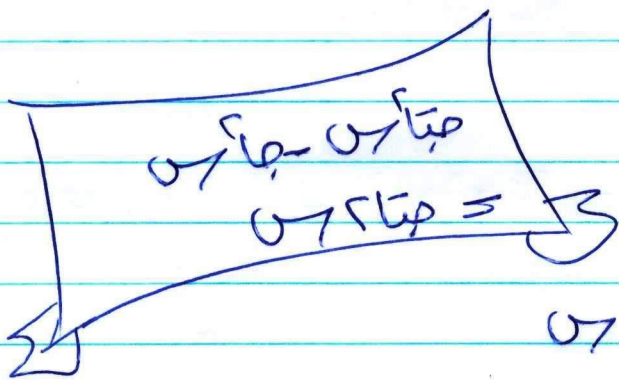 جتا٢س - جا٢س
= جتا٢س
س